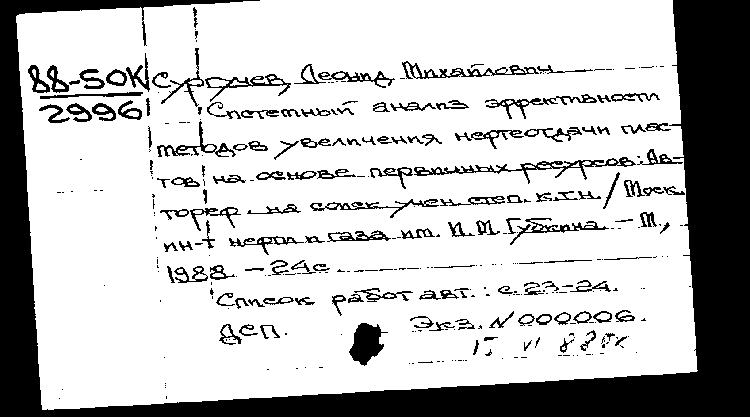 88-50К Сургучев, Леонид Михайлович
2996 Системный анализ эффективности
методов увеличения нефтеотдачи плас-
тов на основе первичных ресурсов: Ав-
тореф. на соиск учен степ. к.т.н. / Моск.
ин-т нефти и газа им. И.М. Губкина. – М,
1988. – 24с.
Список работ авт.: с. 23-24.
ДСП. Экз. N 000006.